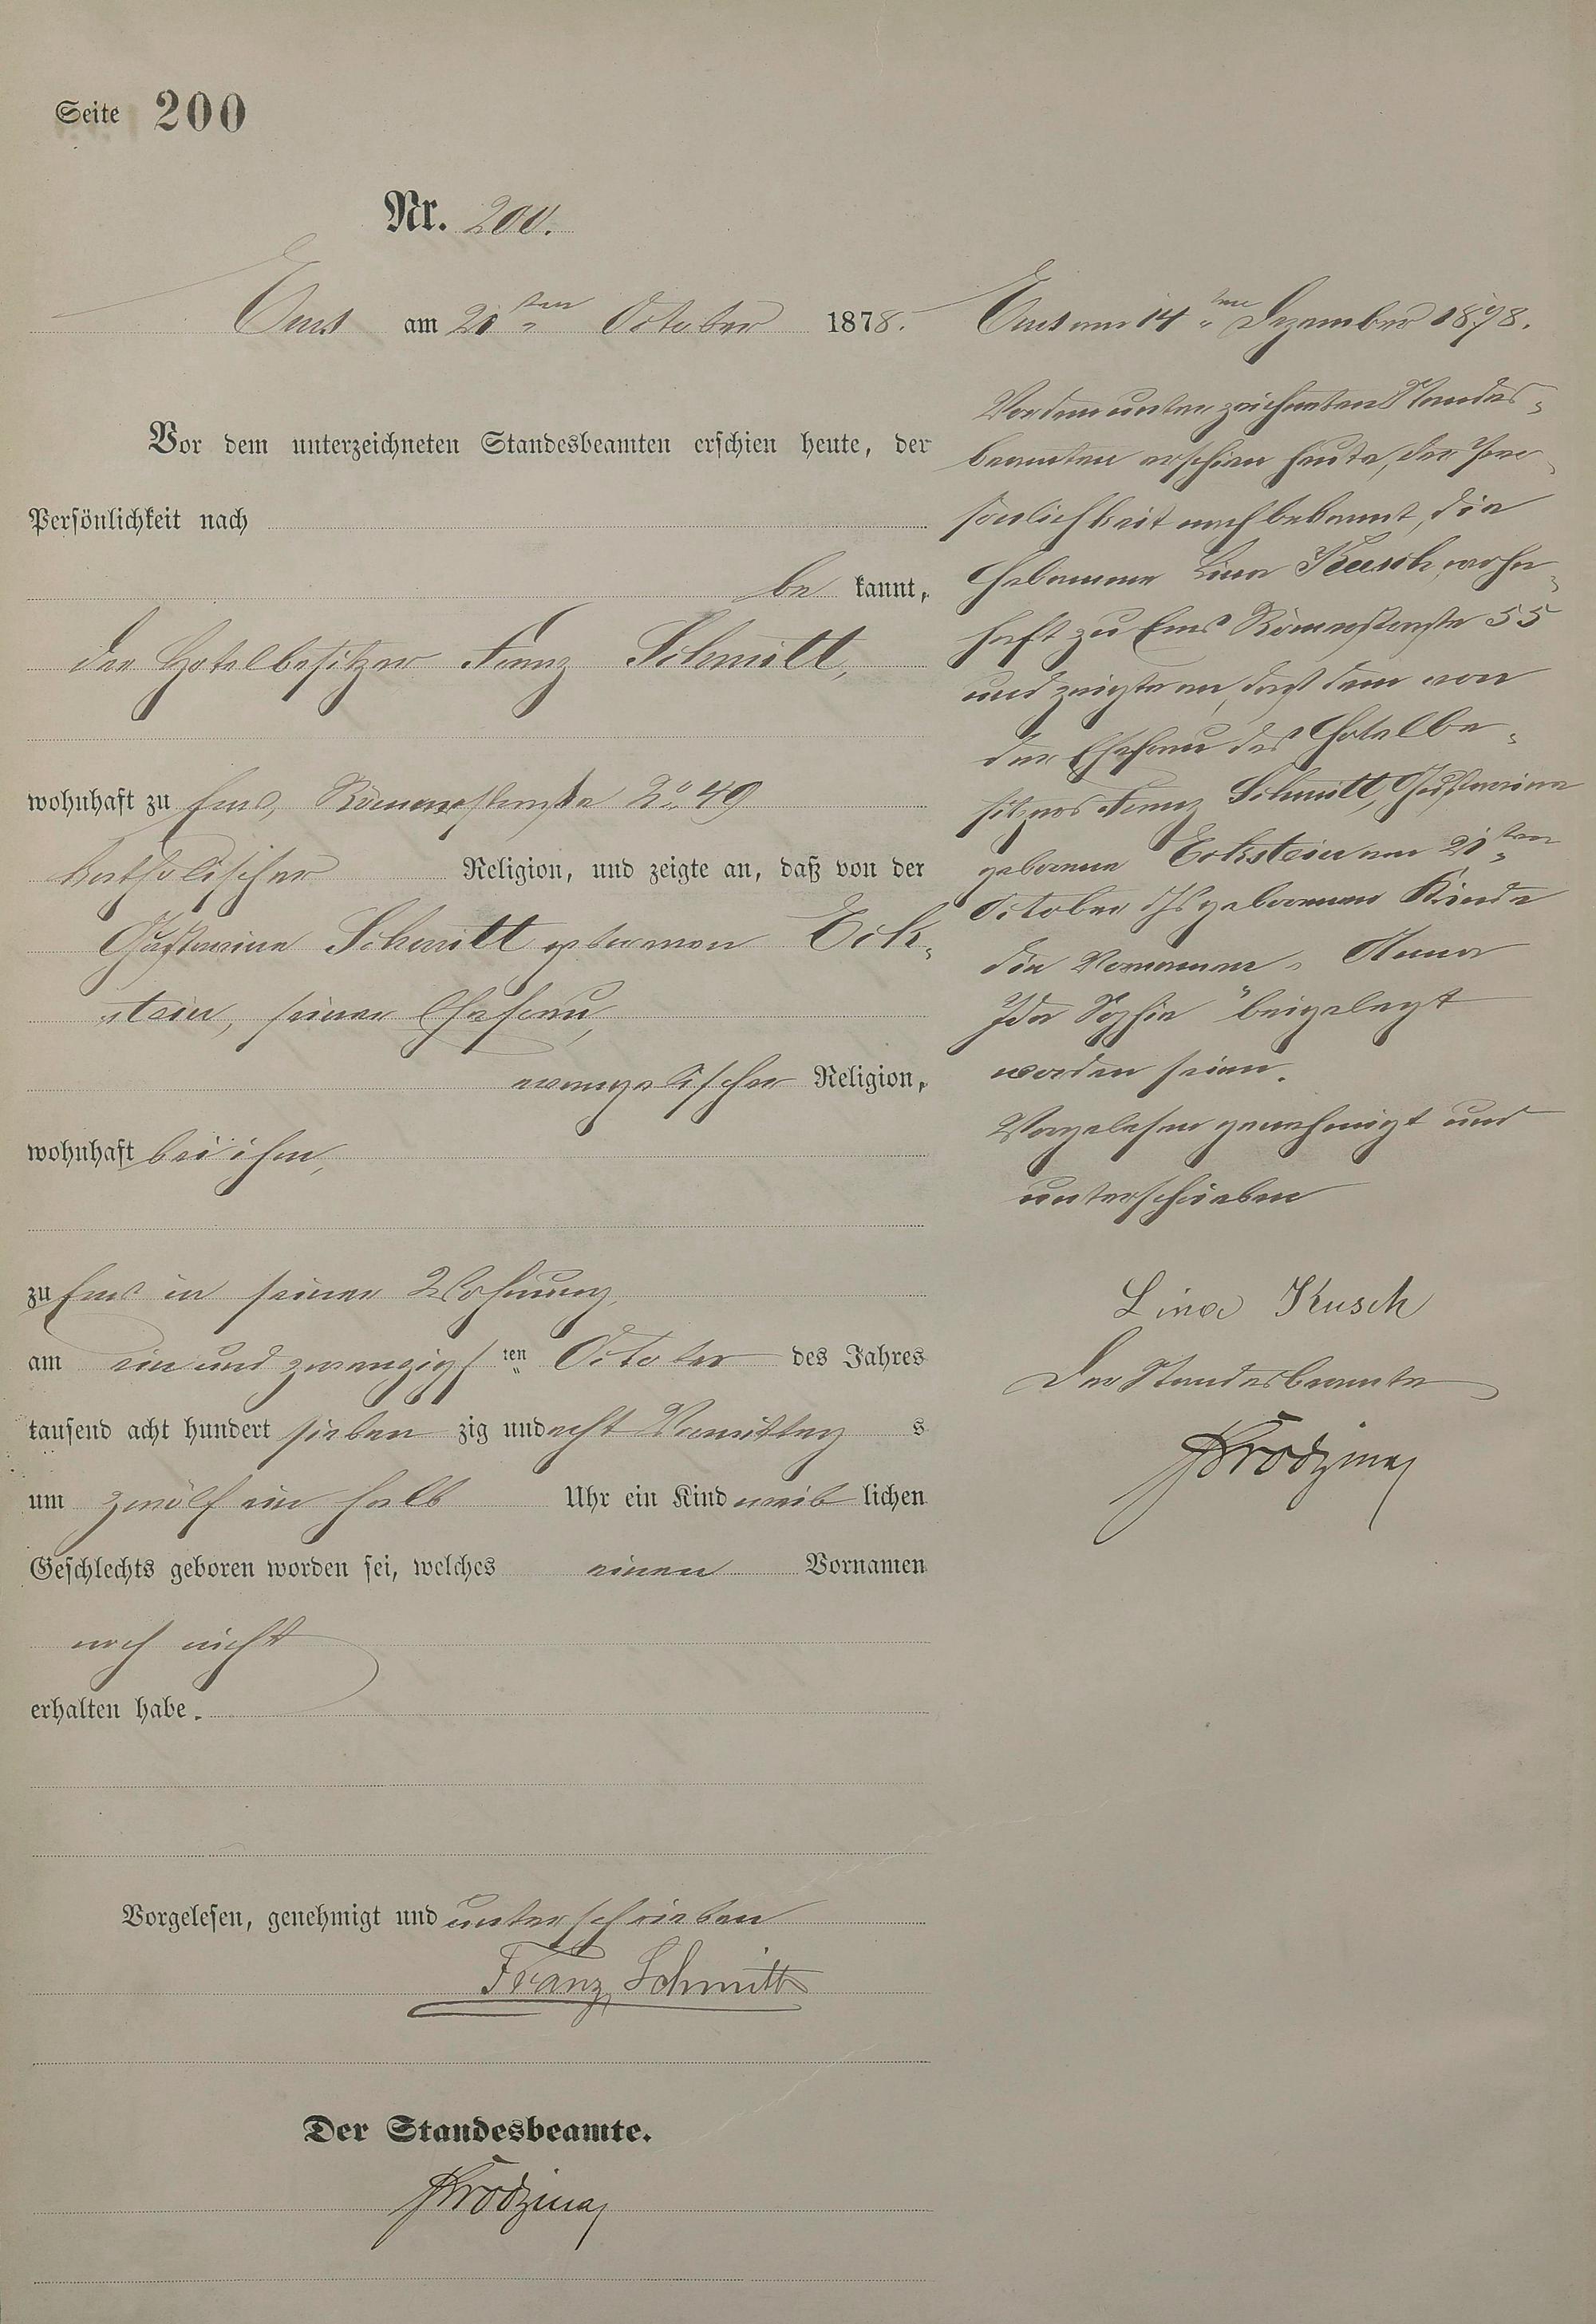 Seite 200
Nr. 200.
Ems am 21ten October 1878.
Vor dem unterzeichneten Standesbeamten erschien heute, der
Persönlichkeit nach
be kannt,
der Hotelbesitzer Franz Schmitt,
wohnhaft zu Ems, Römerstraße No 49
katholischer Religion, und zeigte an, daß von der
Schmitt geborenen Eck-
stein, seiner Ehefrau,
evangelischer Religion,
wohnhaft bei ihm,
zu Ems in seiner Wohnung,
am ein und zwanzigsten October des Jahres
tausend acht hundert sieben zig und acht Vormittag s
um zwölf ein halb Uhr ein Kind weib lichen
Geschlechts geboren worden sei, welches einen Vornamen
noch nicht
erhalten habe.
Vorgelesen, genehmigt und unterschrieben
Franz Schmitt
Der Standesbeamte.
Ems am 14ten Dezember 1878.
Vor dem unterzeichneten Standes-
beamten erschien heute, der Per-
sönlichkeit nach bekannt, die
Hebamme Lina Kusch, wohn-
haft zu Ems Römerstraße 55
und zeigte an, daß dem von
der Ehefrau des Hotelbe-
sitzers Franz Schmitt,
geborene Eckstein am 21ten
October geborenen Kinde
die Vornamen „Anna
Ida Sophie" beigelegt
worden seien.
Vorgelesen genehmigt und
unterschrieben
Lina Kusch
Der Standesbeamte